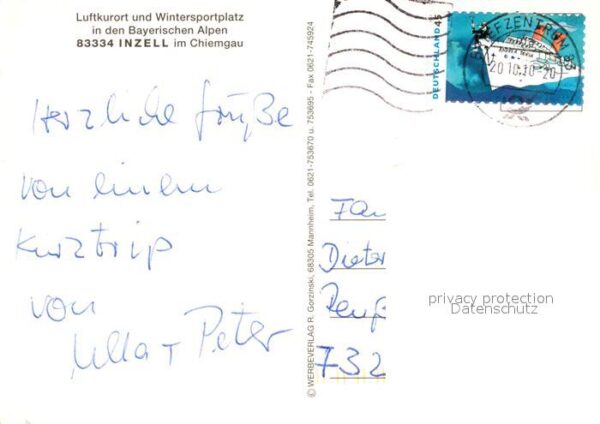 Luftkurort und Wintersportplatz
in den Bayerischen Alpen
83334 INZELL im Chiemgau
Herzliche Grüße
von einem
Kurztrip
von
Ulla + Peter
© WERBEVERLAG R. Gorzinski, 68305 Mannheim, Tel. 0621-753670 u. 753695 - Fax 0621-745924
DEUTSCHLAND 45
EFZENTRUM
20.10.10-20
Fam
Dieter
732
privacy protection
Datenschutz